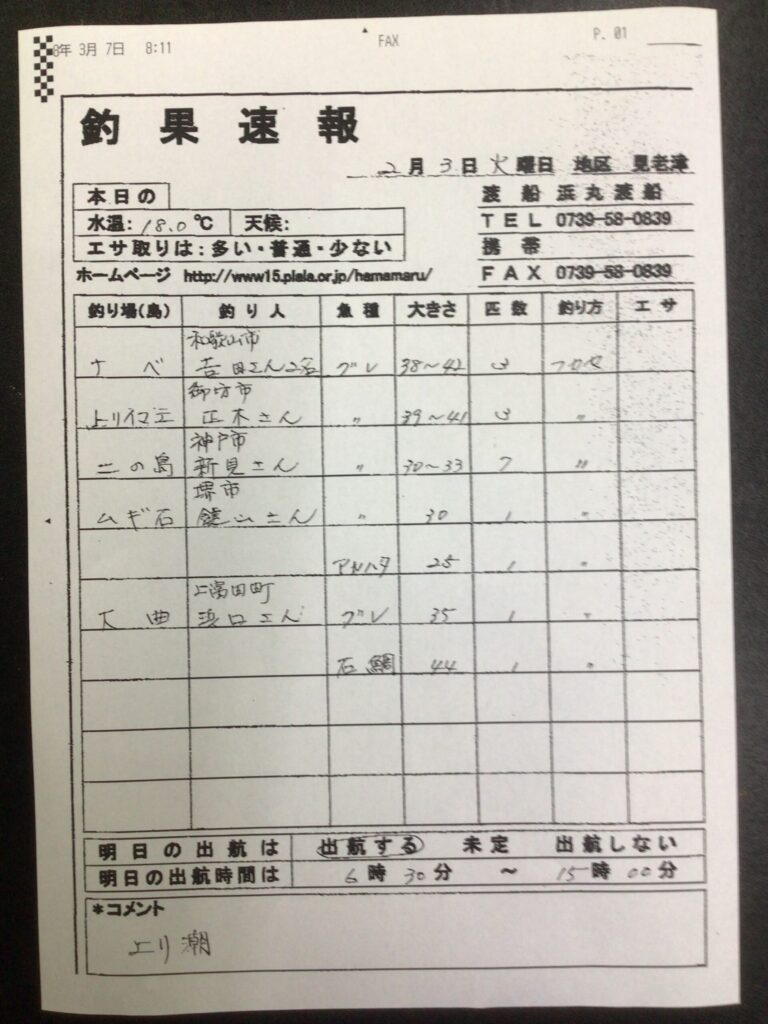 8年 3月 7日 8:11 FAX P. 01
釣果速報
2月3日火曜日 地区 見老津
本日の
水温: 18.0℃ 天候:
エサ取りは:多い・普通・少ない
渡船 浜丸渡船
TEL 0739-58-0839
携帯
FAX 0739-58-0839
ホームページ http://www15.plala.or.jp/hamamaru/
釣り場(島) 釣り人 魚種 大きさ 匹数 釣り方 エサ
和歌山市
ナベ 吉田さん2名 グレ 38〜42 3 フカセ
御坊市
正木さん 〃 39〜41 3 〃
神戸市
二の島 新見さん 〃 30〜33 7 〃
堺市
ムギ石 さん 〃 30 1 〃
アカハタ 25 1 〃
上富田町
大曲 浜口さん グレ 35 1 〃
石鯛 44 1 〃
明日の出航は 出航する 未定 出航しない
明日の出航時間は 6時30分 〜 15時00分
*コメント
上り潮